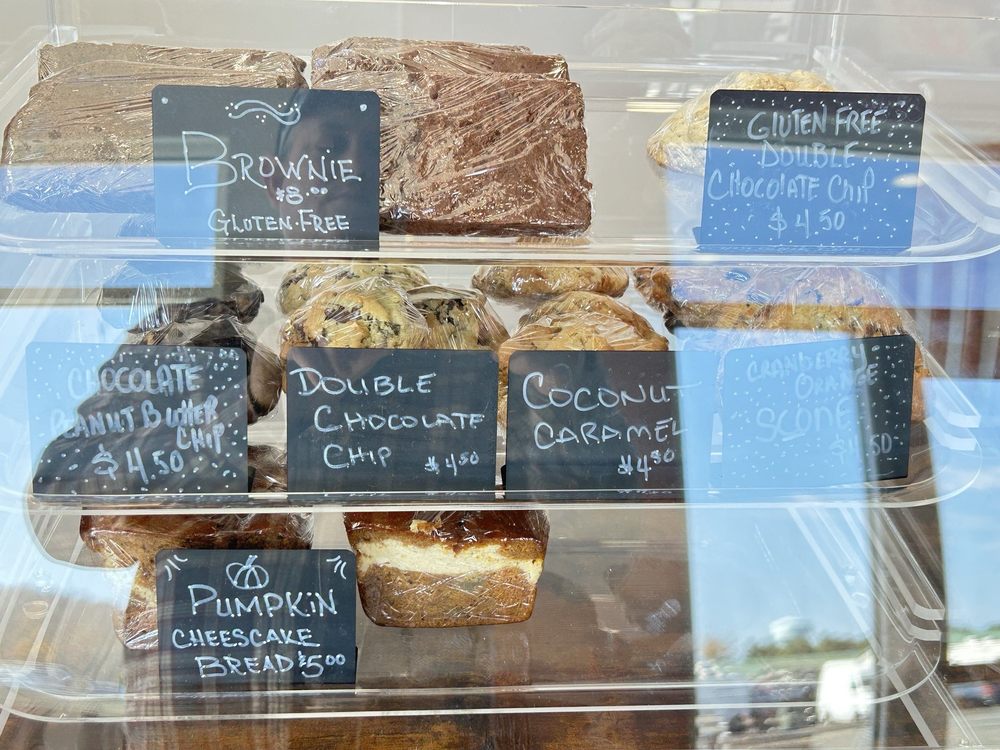 BROWNIE
$8.00
GLUTEN-FREE
GLUTEN FREE
DOUBLE
CHOCOLATE CHIP
$4.50
CHOCOLATE
PEANUT BUTTER
CHIP
$4.50
DOUBLE
CHOCOLATE
CHIP $4.50
COCONUT
CARAMEL
$4.50
CRANBERRY
ORANGE
SCONE
PUMPKIN
CHEESCAKE
BREAD $5.00